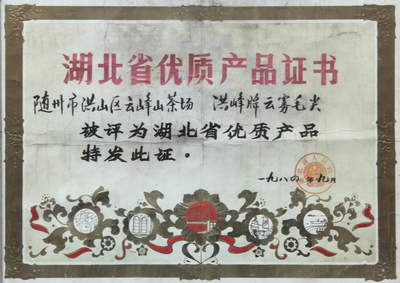 湖北省优质产品证书
随州市洪山区云峰山茶场 洪峰牌云雾毛尖
被评为湖北省优质产品
特发此证。
一九八四年九月